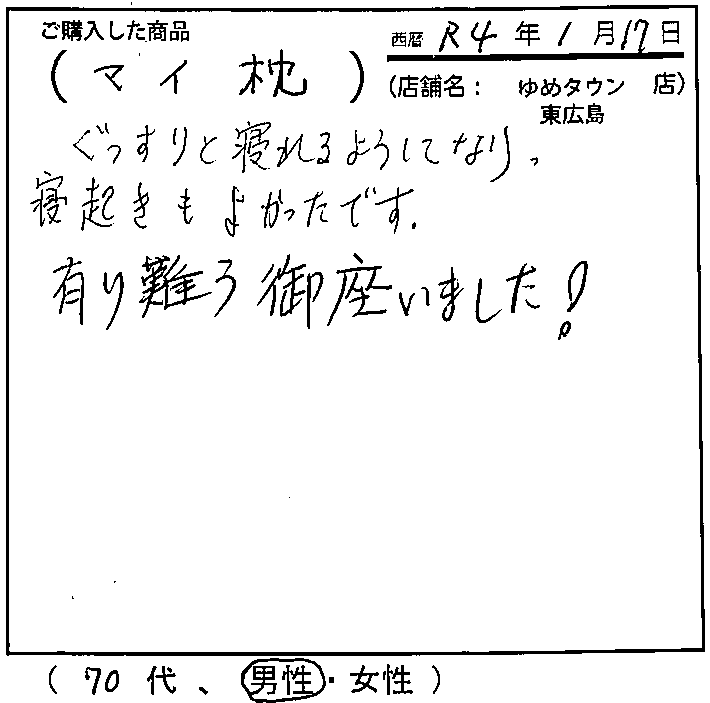 ご購入した商品
西暦 R4 年 1 月 17 日
( マイ 枕 )
(店舗名： ゆめタウン 店)
東広島
ぐっすりと寝れるようしてなり、
寝起きもよかったです.
有り難う御座いました!
( 70 代 、 男性 ・ 女性 )